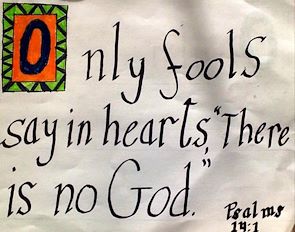 Only fools
say in hearts, "There
is no God."
Psalms
14:1